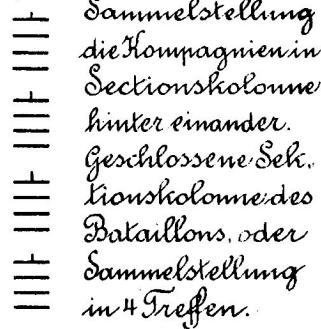 Sammelstellung
die Kompagnien in
Sectionskolonne
hinter einander.
Geschlossene Sek-
tionskolonne des
Bataillons, oder
Sammelstellung
in 4 Treffen.